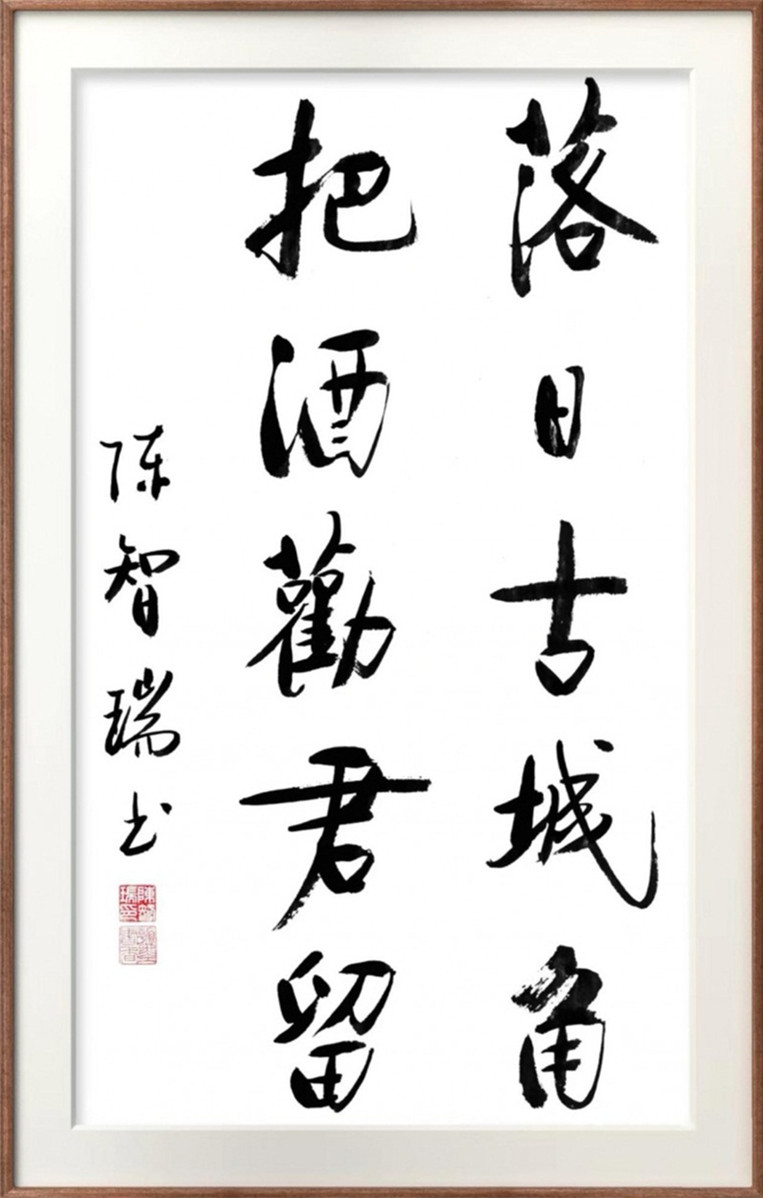 落日古城角
把酒勸君留
陈智瑞书